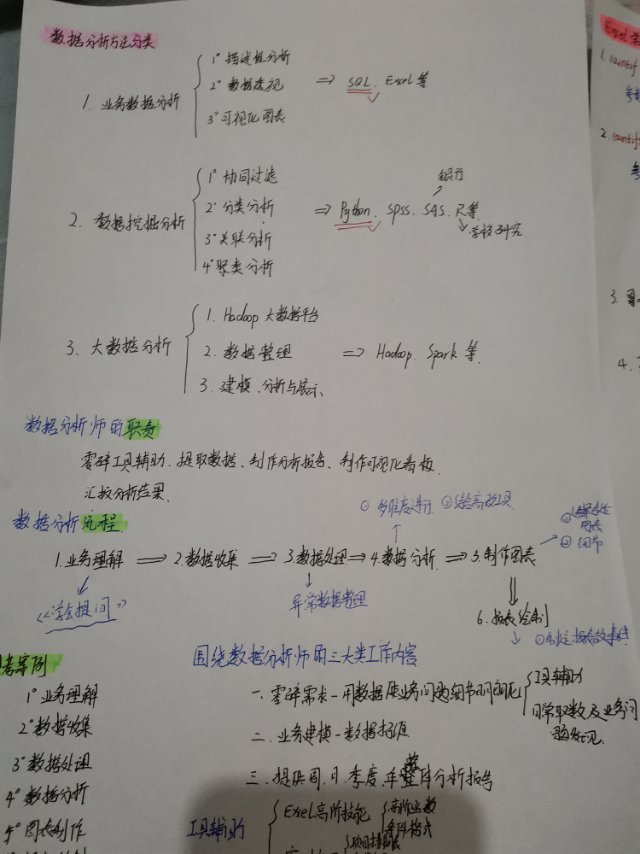 数据分析方法分类
1. 业务数据分析
1° 描述性分析
2° 数据透视
3° 可视化图表
=> SQL、Excel等
2. 数据挖掘分析
1° 协同过滤
2° 分类分析
3° 关联分析
4° 聚类分析
=> Python、SPSS、SAS、R等
银行
学校研究
3. 大数据分析
1. Hadoop 大数据平台
2. 数据管理
3. 建模、分析与展示、
=> Hadoop、Spark 等
数据分析师的职责
零碎工具辅助、提取数据、制作分析报告、制作可视化看板、
汇报分析结果、
数据分析流程
① 多维度进行 ②
1. 业务理解 => 2. 数据收集 => 3. 数据处理 => 4. 数据分析 => 5. 制作图表
①
图表
② 细节
《学会提问》
异常数据整理
6. 报表绘制
①
围绕数据分析师的三大类工作内容
一、零碎需求-用数据使业务问题细节
工具辅助
日常取数及业务问
题发现、
二、业务建模-数据挖掘
三、提供周、月、季度、年整体分析报告
工具辅助
Excel高阶技能
高阶函数
条件格式
考案例
1° 业务理解
2° 数据收集
3° 数据处理
4° 数据分析
5° 图表制作
Excel
1. Countif
2. Countif
3.
4.